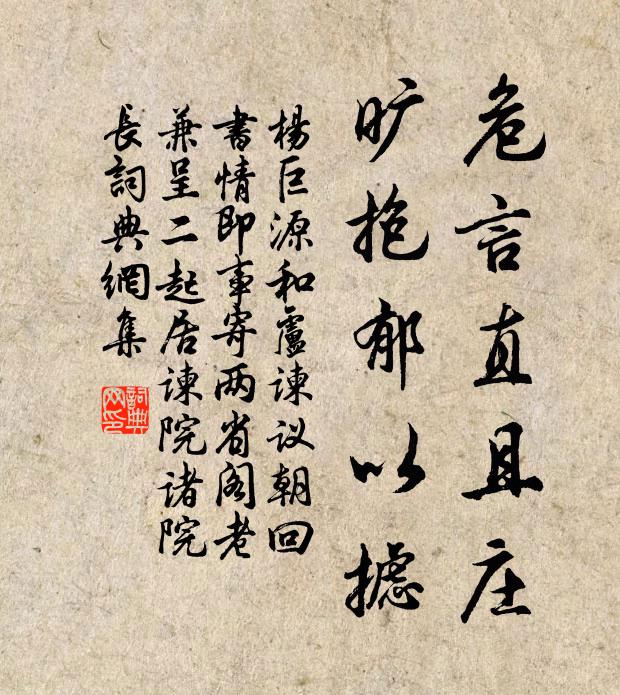 危言直且庄
旷抱郁以摅
楊巨源和盧谏议朝回
書情即事寄两省阁老
兼呈二起居谏院诸院
長詞典網集
詞典
网印